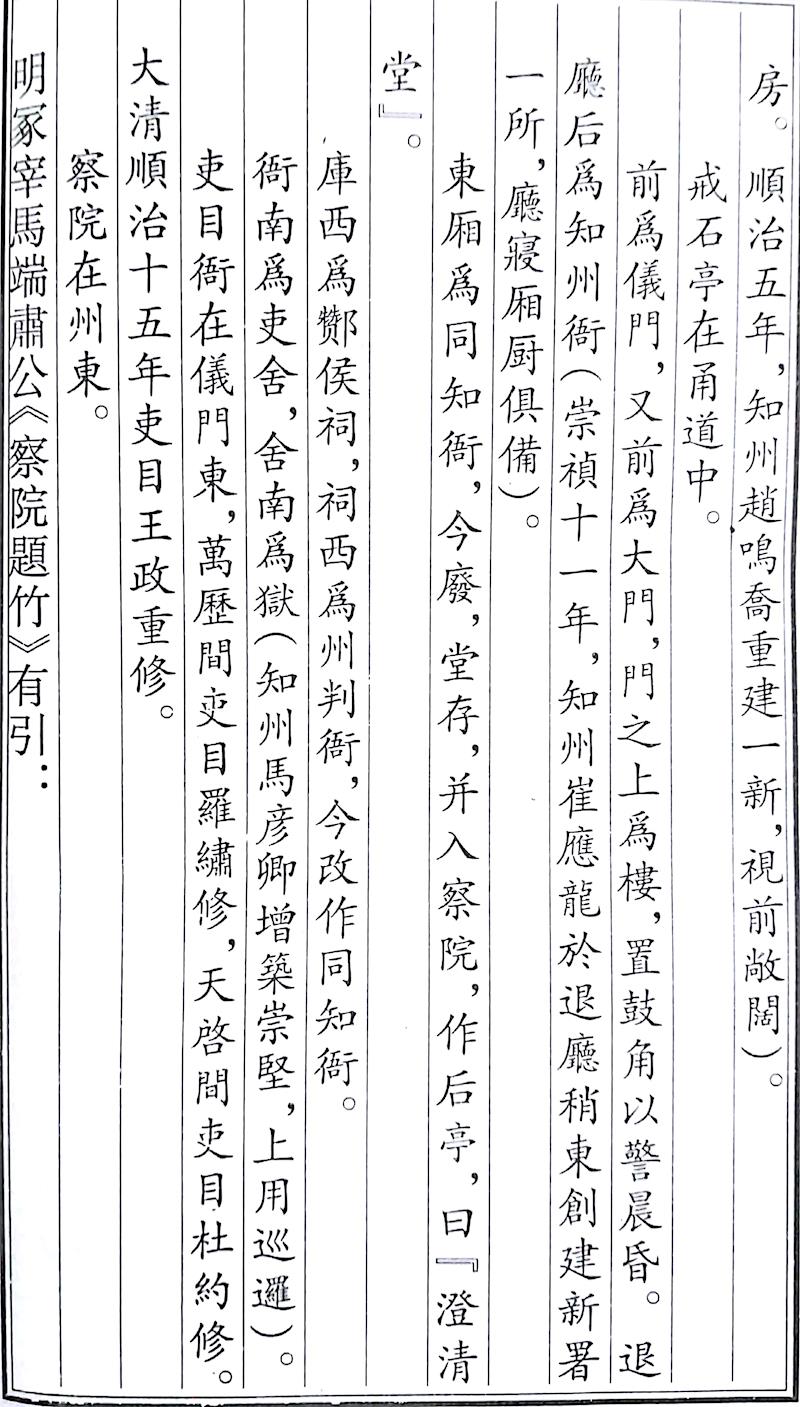 房。順治五年，知州趙鳴喬重建一新，視前敞闊）。
戒石亭在甬道中。
前爲儀門，又前爲大門，門之上爲樓，置鼓角以警晨昏。退
廳后爲知州衙（崇禎十一年，知州崔應龍於退廳稍東創建新署
一所，廳寢厢厨俱備）。
東厢爲同知衙，今廢，堂存，并入察院，作后亭，曰『澄清
堂』。
庫西爲酇侯祠，祠西爲州判衙，今改作同知衙。
衙南爲吏舍，舍南爲獄（知州馬彦卿增築崇堅，上用巡邏）。
吏目衙在儀門東，萬歷間吏目羅繡修，天啓間吏目杜約修。
大清順治十五年吏目王政重修。
察院在州東。
明冢宰馬端肅公《察院題竹》有引：